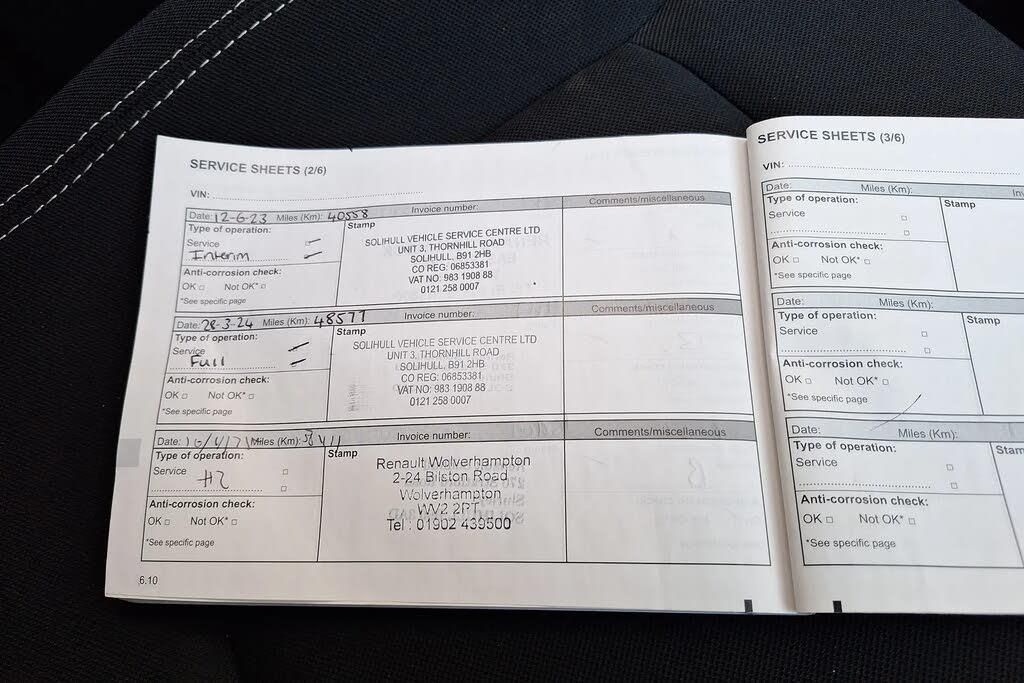 SERVICE SHEETS (2/6)
VIN:
Date: 12-6-23 Miles (Km): 40558 Invoice number: Comments/miscellaneous
Type of operation:
Service
Interim
Anti-corrosion check:
OK Not OK*
*See specific page
Stamp
SOLIHULL VEHICLE SERVICE CENTRE LTD
UNIT 3, THORNHILL ROAD
SOLIHULL, B91 2HB
CO REG: 06853381
VAT NO: 983 1908 88
0121 258 0007
Date: 28-3-24 Miles (Km): 48577 Invoice number: Comments/miscellaneous
Type of operation:
Service
Full
Anti-corrosion check:
OK Not OK*
*See specific page
Stamp
SOLIHULL VEHICLE SERVICE CENTRE LTD
UNIT 3, THORNHILL ROAD
SOLIHULL, B91 2HB
CO REG: 06853381
VAT NO: 983 1908 88
0121 258 0007
Date: Miles (Km): Invoice number: Comments/miscellaneous
Type of operation:
Service
Anti-corrosion check:
OK Not OK*
*See specific page
Stamp
Renault Wolverhampton
2-24 Bilston Road
Wolverhampton
WV2 2RT
Tel : 01902 439500
6.10
SERVICE SHEETS (3/6)
VIN:
Date: Miles (Km):
Type of operation:
Service
Anti-corrosion check:
OK Not OK*
*See specific page
Stamp
Date: Miles (Km):
Type of operation:
Service
Anti-corrosion check:
OK Not OK*
*See specific page
Stamp
Date: Miles (Km):
Type of operation:
Service
Anti-corrosion check:
OK Not OK*
*See specific page